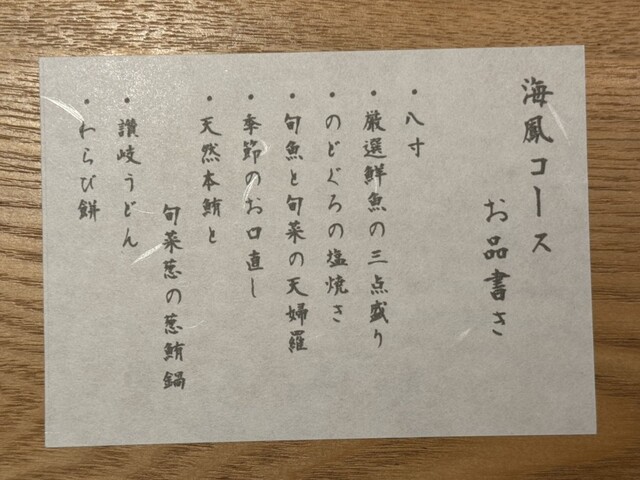 海鳳コース
お品書き
・八寸
・厳選鮮魚の三点盛り
・のどぐろの塩焼き
・旬魚と旬菜の天婦羅
・季節のお口直し
・天然本鮪と
旬菜葱の葱鮪鍋
・讃岐うどん
・わらび餅